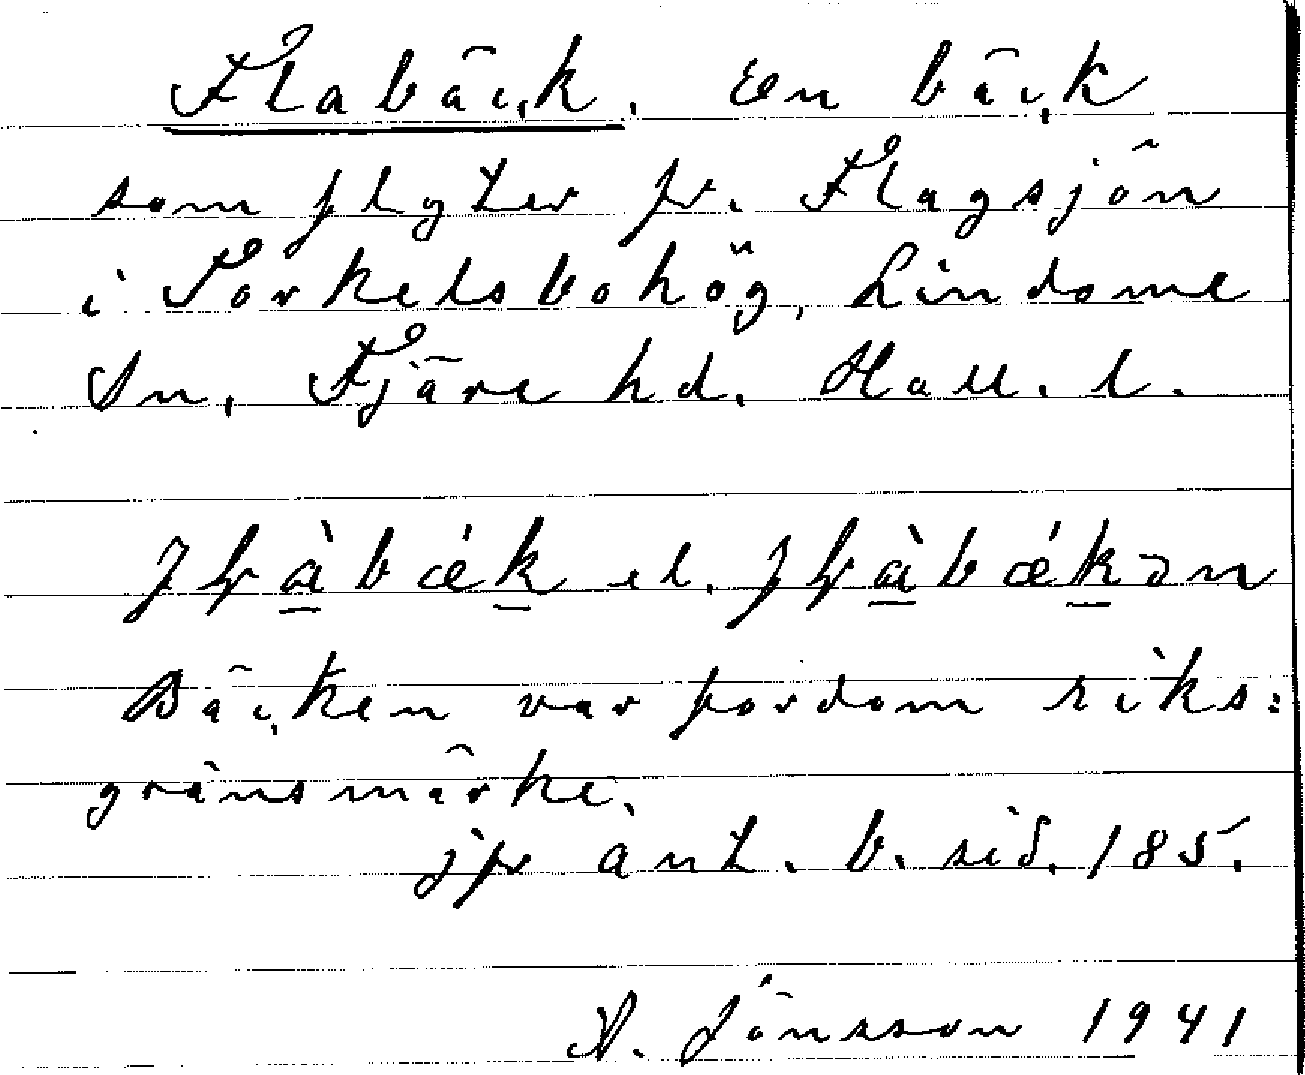 Flabäck. En bäck
som flyter fr. Flagsjön
i Torkelsbohög, Lindome
Sn. Fjäre hd. Hall. l.
el.
Bäcken var fordom riks=
gränsmärke.
jfr ant. b. sid. 185.
A. Jönsson 1941